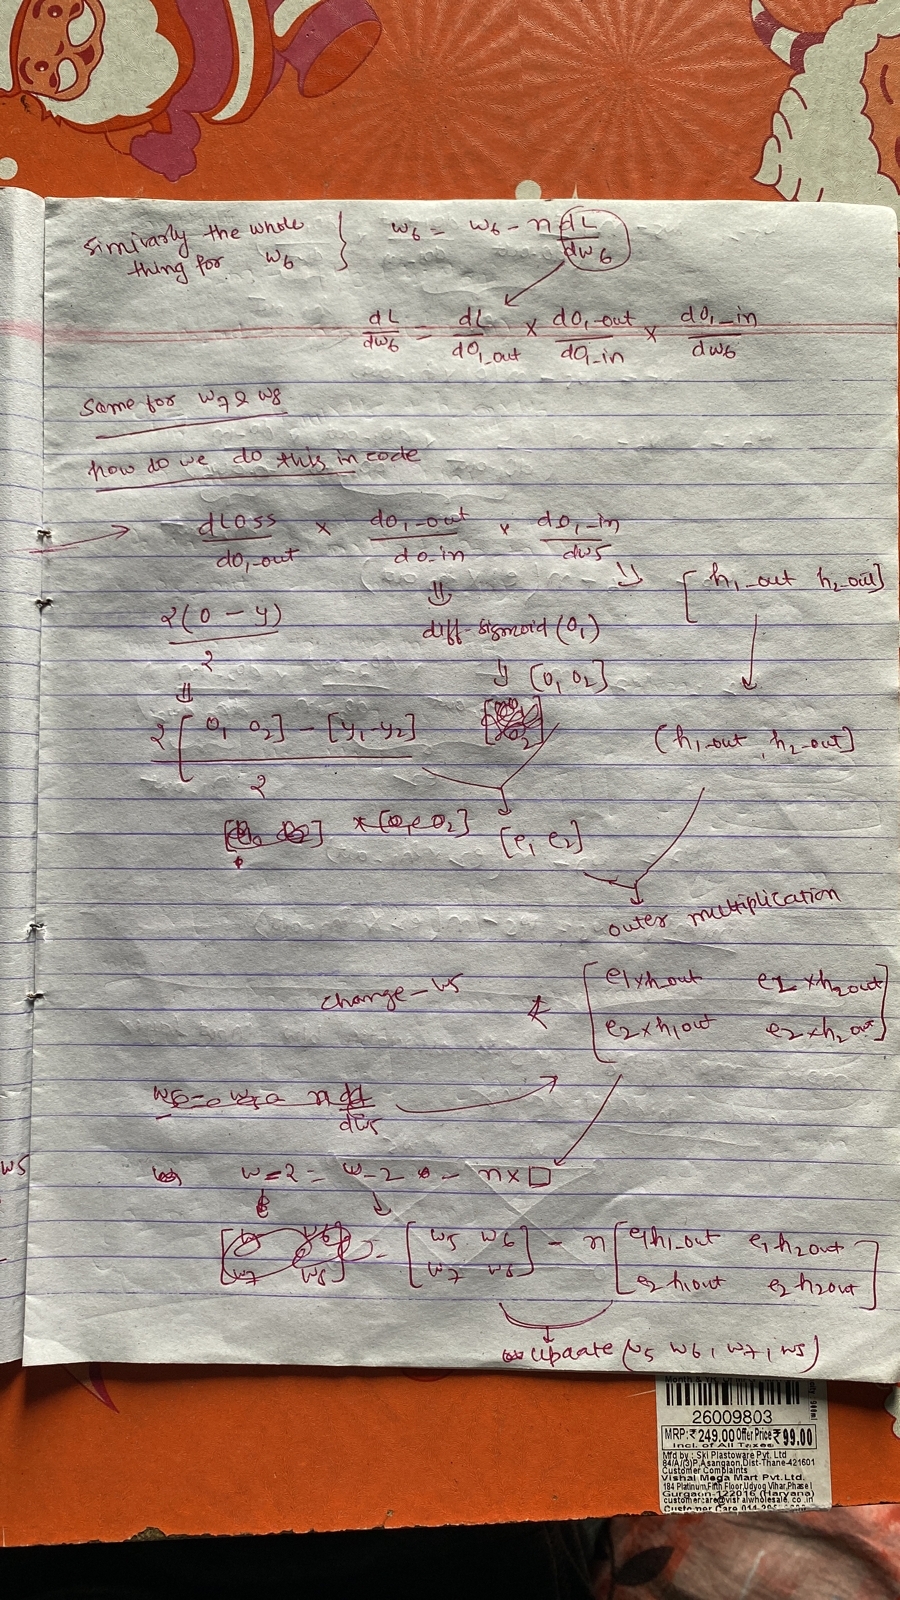 Similarly the whole
thing for w6 } w6 = w6 - n dL/dw6
dL/dw6 = dL/dO1_out × dO1_out/dO1_in × dO1_in/dw6
Same for w7 & w8
how do we do this in code
→ dLoss/dO1_out × dO1_out/dO_in × dO1_in/dw5
[h1_out h2_out]
2(O - y)/2
diff-sigmoid(O1)
[O1 O2]
2[O1 O2] - [y1-y2]/2
(h1_out, h2_out]
[e1 e2]
outer multiplication
change_w5
[e1×h_out e2×h2out]
[e2×h1out e2×h2out]
w5 n dL/dw5
w5
w_2 = w_2 - n×□
[w7 w8] = [w5 w6 w7 w8] - n [e1h1_out e1h2out
e2h1out e2h2out]
update (w5 w6, w7, w8)
26009803
MRP:₹249.00 Offer Price ₹99.00
Incl. of All Taxes
Mfd by : Ski Plastoware Pvt. Ltd
84/A/(3)P,Asangaon,Dist-Thane-421601
Customer Complaints
Vishal Mega Mart Pvt. Ltd.
184 Platinum,Fifth Floor,Udyog Vihar,Phase I
Gurgaon-122016 (Haryana)